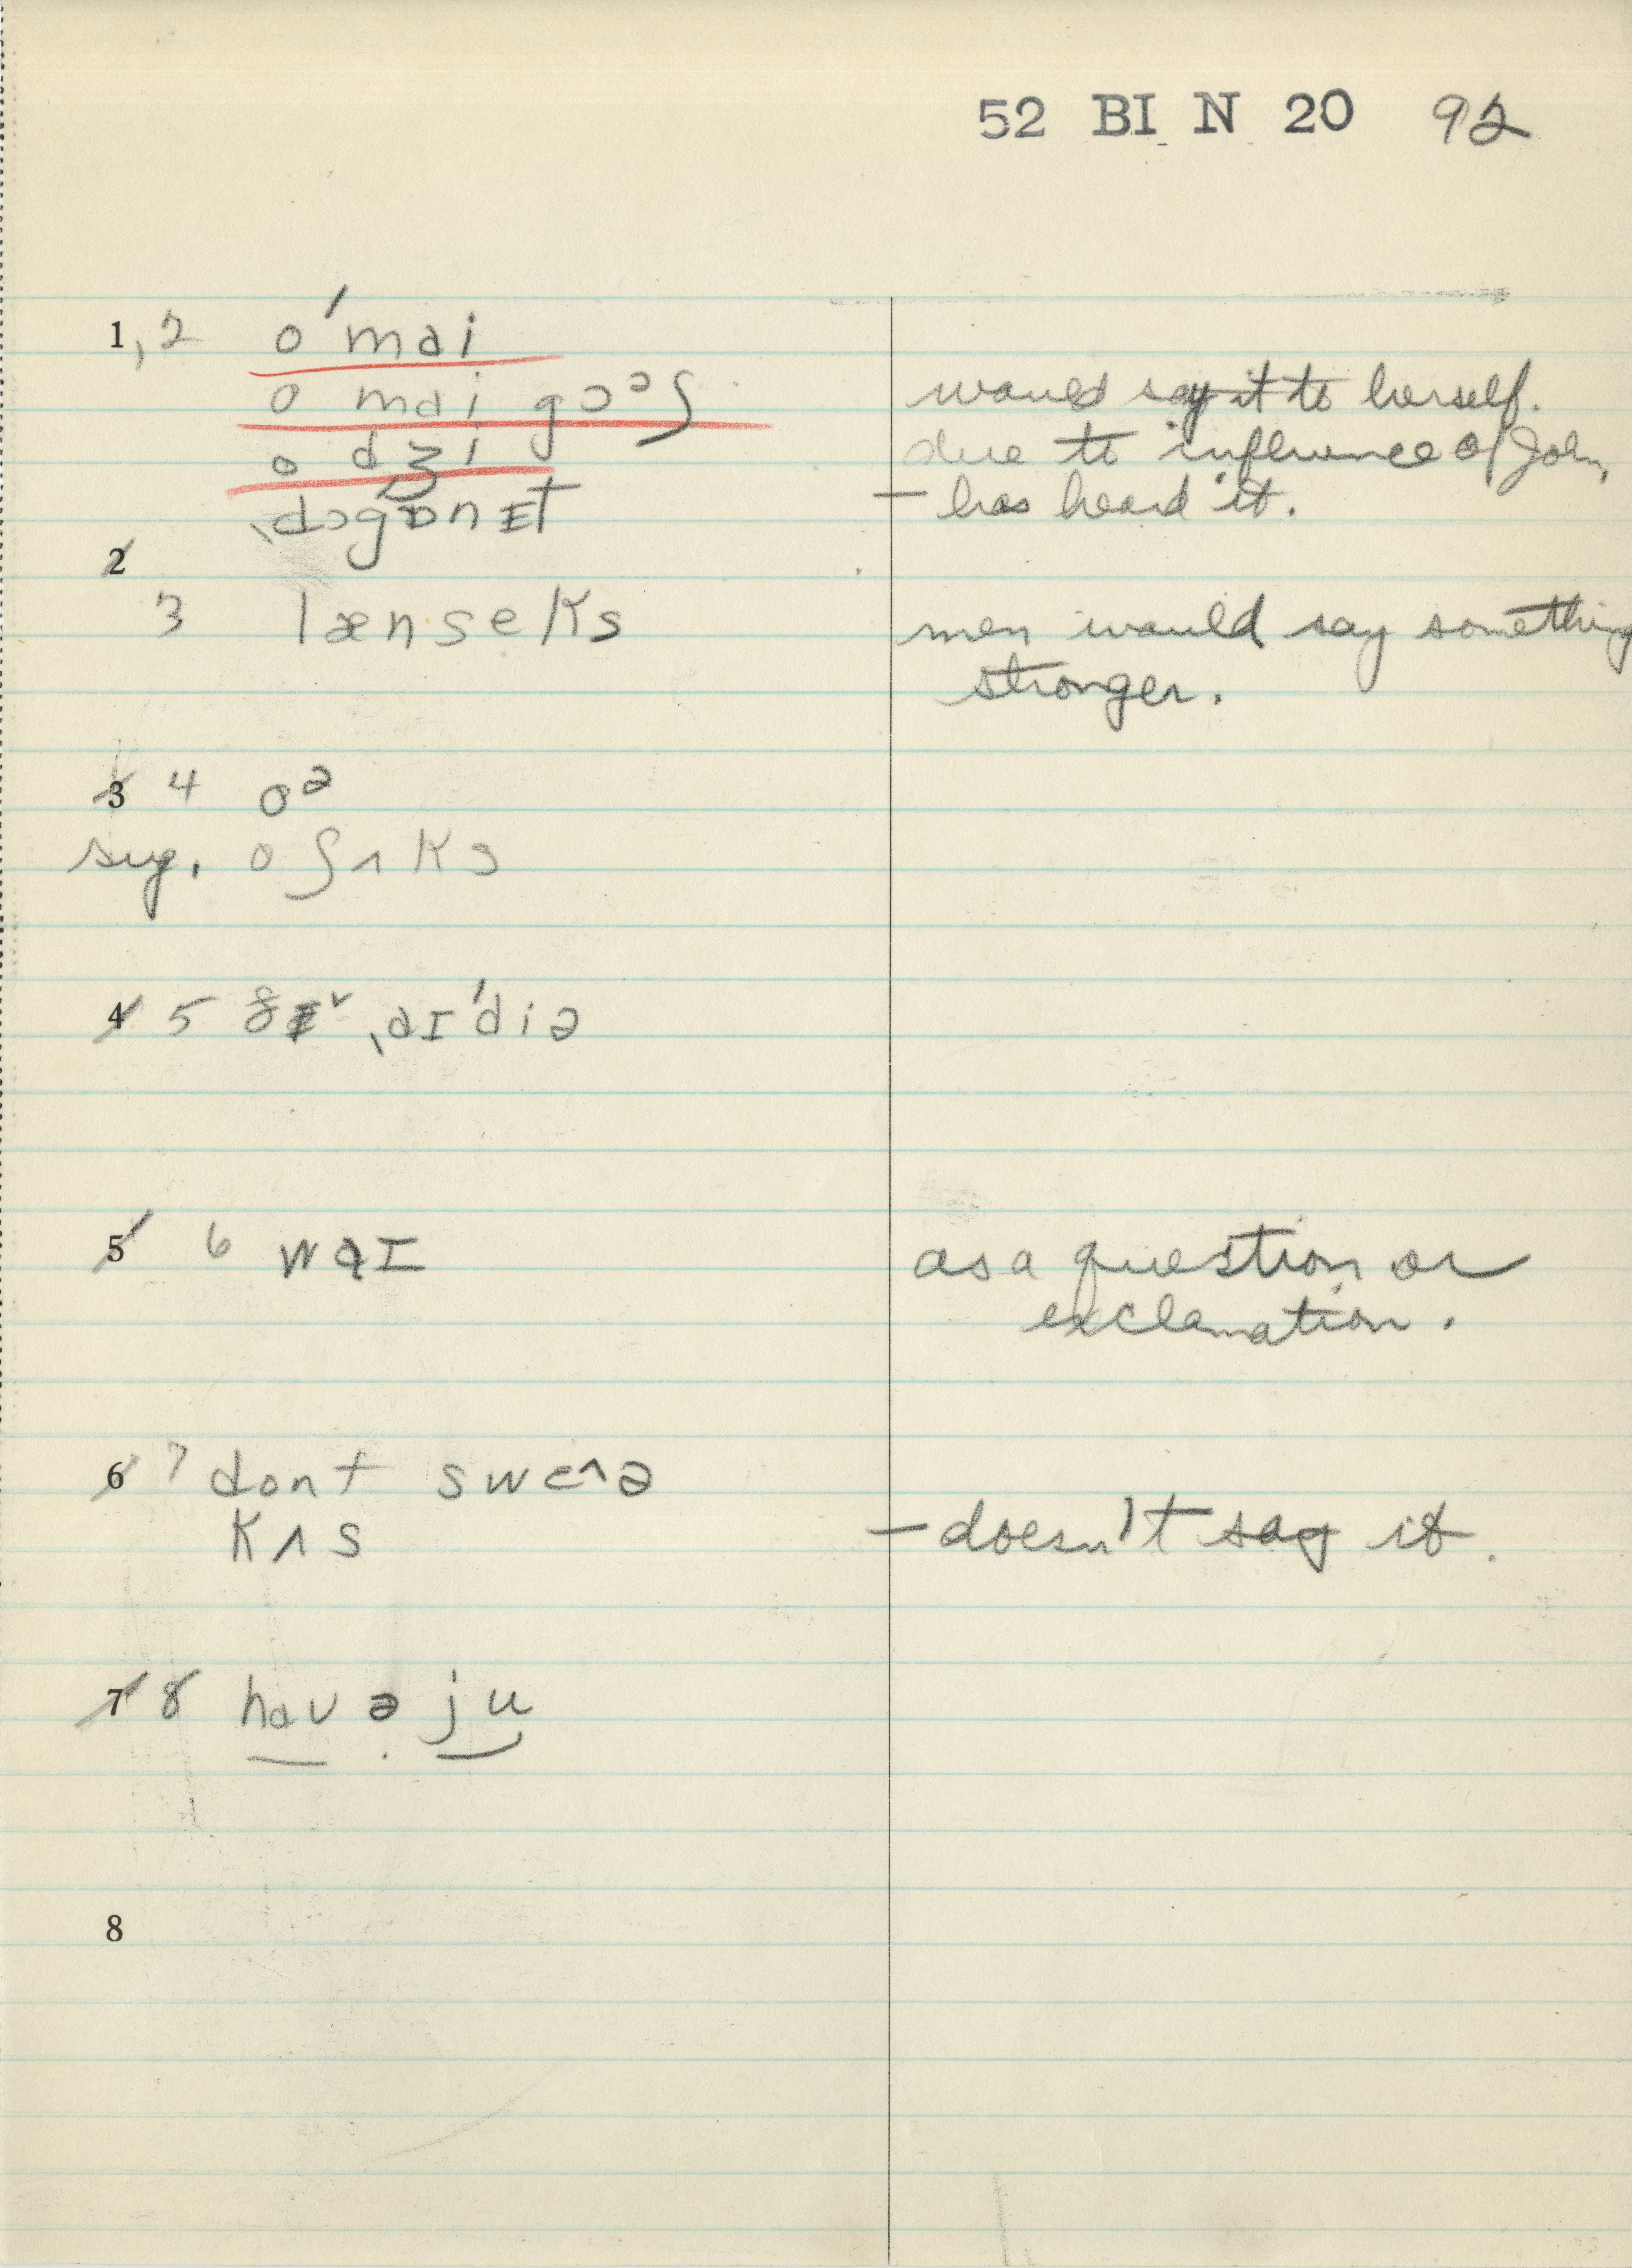 52 BI N 20 92
1, 2 o ˈmai
o mai gɔᵊʃ would say it to herself.
o dʒi due to influence of John,
ˌdɔgɒnɪt — has heard it.
2
3 lænseks men would say something
stronger.
3 4 oᵊ
sug. o ʃʌks
4 5 ðɪ˅ ˌaɪˈdiə
5 6 waɪ as a question or
exclamation.
6 7 dont swɛ^ə
kʌs — doesn't say it.
7 8 hav ə ju
8